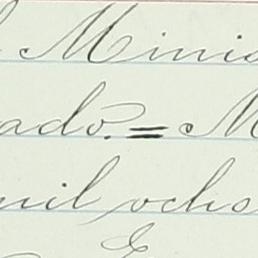 l Minis
ado. = M
mil ochs
E